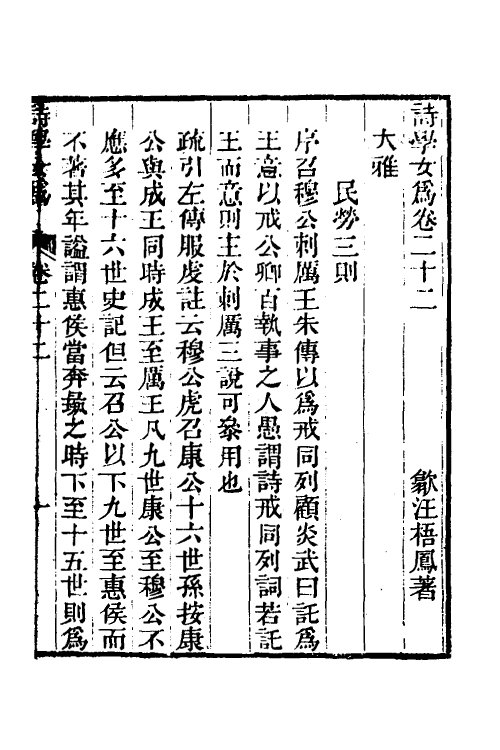 詩學女爲卷二十二　　　歙汪梧鳳著
大雅
民勞三則
序召穆公刺厲王朱傳以爲戒同列顧炎武曰託爲
王意以戒公卿百執事之人愚謂詩戒同列詞若託
王而意則主於刺厲三說可叅用也
疏引左傳服虔註云穆公虎召康公十六世孫按康
公與成王同時成王至厲王凡九世康公至穆公不
應多至十六世史記但云召公以下九世至惠侯而
不著其年謚謂惠侯當奔彘之時下至十五世則爲
詩學女爲　卷二十二　一